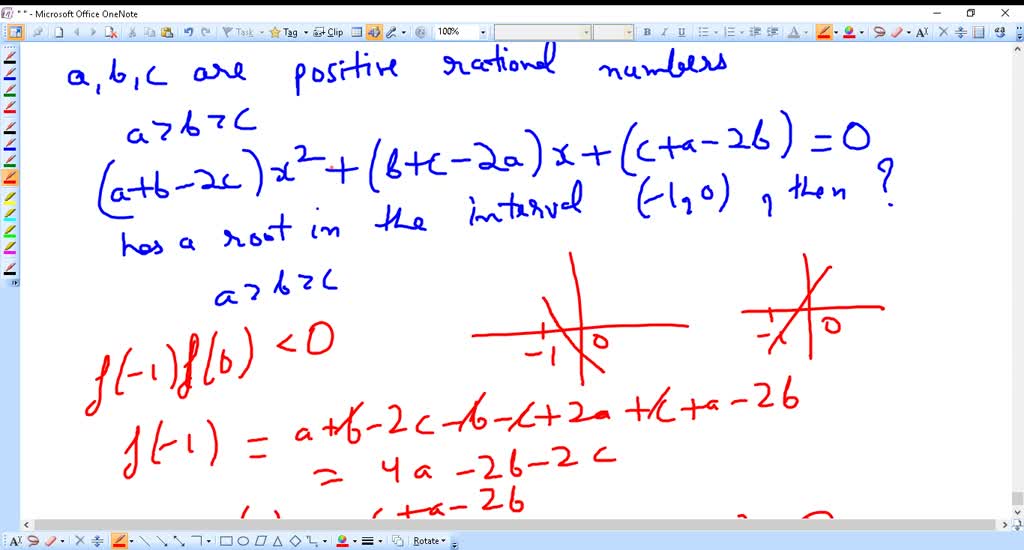 " " - Microsoft Office OneNote
Task Tag Clip 100% B I U
a, b, c are positive rational numbers
a > b > c
(a+b-2c)x² + (b+c-2a)x + (c+a-2b) = 0
has a root in the interval (-1,0), then ?
a > b > c
f(-1)f(0) < 0
-1 0
-1 0
f(-1) = a+b-2c-b-c+2a+c+a-2b
= 4a-2b-2c
c+a-2b
Rotate